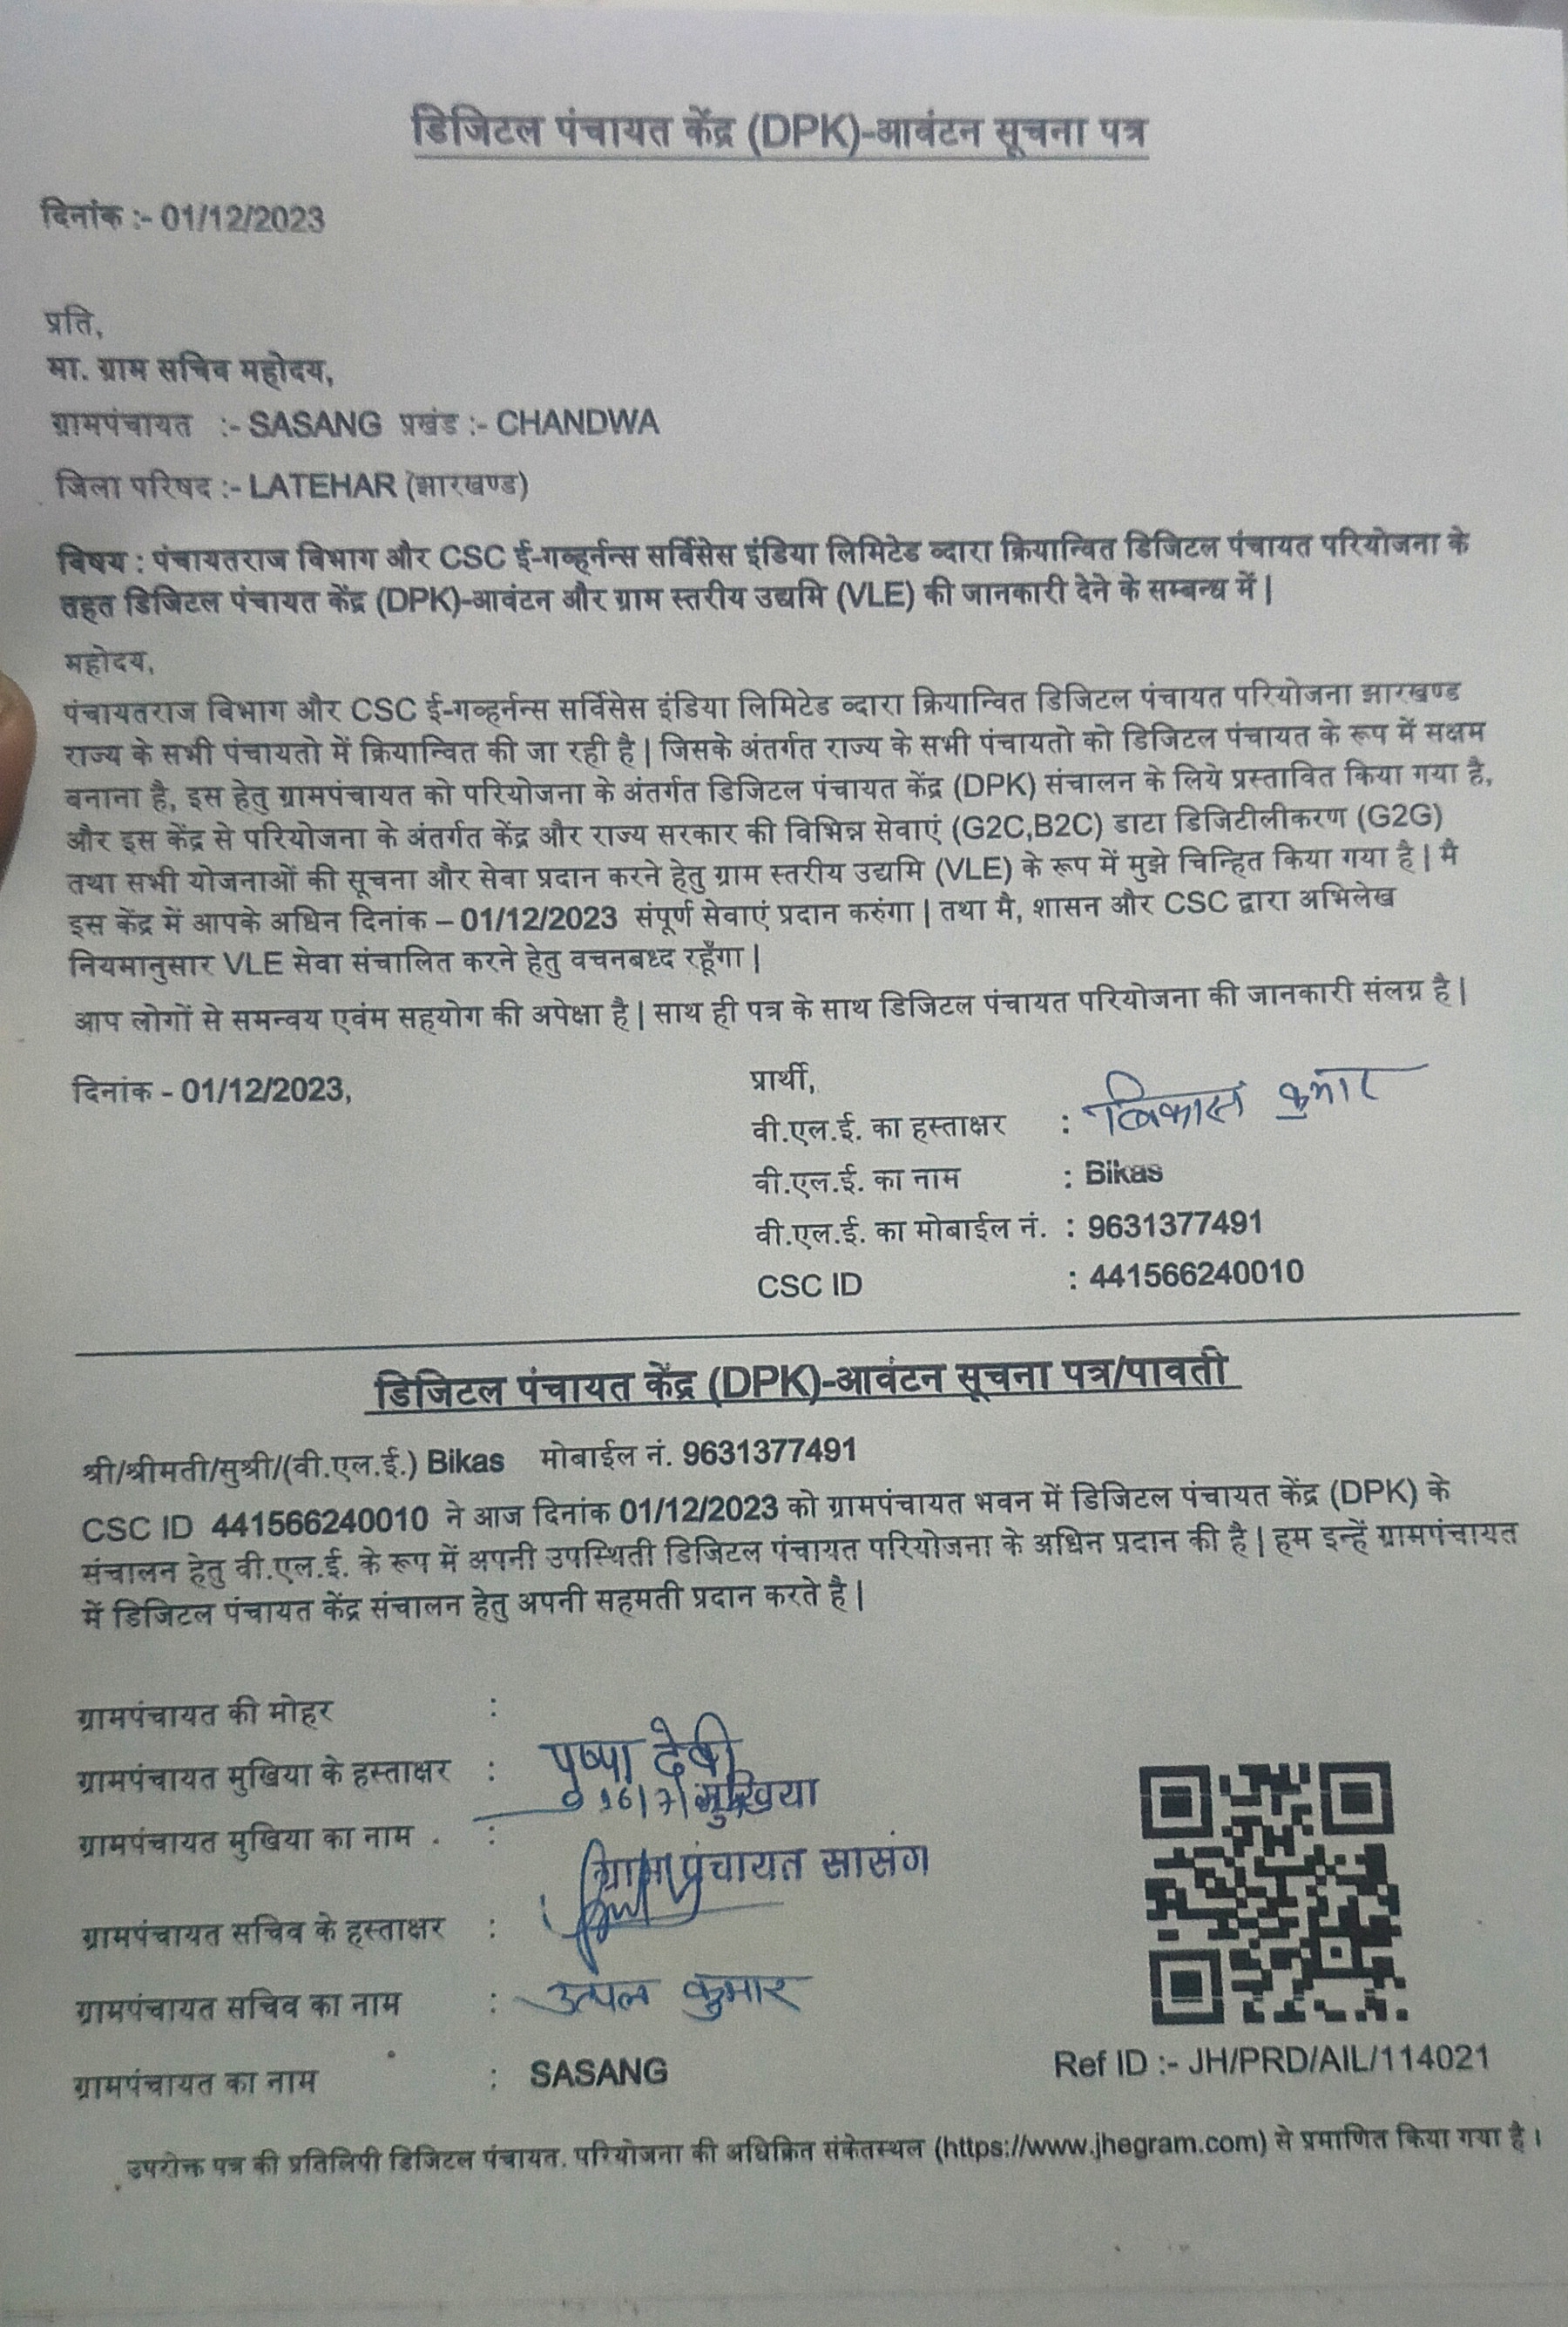 डिजिटल पंचायत केंद्र (DPK)-आवंटन सूचना पत्र
दिनांक :- 01/12/2023
प्रति,
मा. ग्राम सचिव महोदय,
ग्रामपंचायत :- SASANG प्रखंड :- CHANDWA
जिला परिषद :- LATEHAR (झारखण्ड)
विषय : पंचायतराज विभाग और CSC ई-गव्हर्नन्स सर्विसेस इंडिया लिमिटेड व्दारा क्रियान्वित डिजिटल पंचायत परियोजना के
तहत डिजिटल पंचायत केंद्र (DPK)-आवंटन और ग्राम स्तरीय उद्यमि (VLE) की जानकारी देने के सम्बन्ध में |
महोदय,
पंचायतराज विभाग और CSC ई-गव्हर्नन्स सर्विसेस इंडिया लिमिटेड व्दारा क्रियान्वित डिजिटल पंचायत परियोजना झारखण्ड
राज्य के सभी पंचायतो में क्रियान्वित की जा रही है | जिसके अंतर्गत राज्य के सभी पंचायतो को डिजिटल पंचायत के रूप में सक्षम
बनाना है, इस हेतु ग्रामपंचायत को परियोजना के अंतर्गत डिजिटल पंचायत केंद्र (DPK) संचालन के लिये प्रस्तावित किया गया है,
और इस केंद्र से परियोजना के अंतर्गत केंद्र और राज्य सरकार की विभिन्न सेवाएं (G2C,B2C) डाटा डिजिटीलीकरण (G2G)
तथा सभी योजनाओं की सूचना और सेवा प्रदान करने हेतु ग्राम स्तरीय उद्यमि (VLE) के रूप में मुझे चिन्हित किया गया है | मै
इस केंद्र में आपके अधिन दिनांक – 01/12/2023 संपूर्ण सेवाएं प्रदान करुंगा | तथा मै, शासन और CSC द्वारा अभिलेख
नियमानुसार VLE सेवा संचालित करने हेतु वचनबध्द रहूँगा |
आप लोगों से समन्वय एवंम सहयोग की अपेक्षा है | साथ ही पत्र के साथ डिजिटल पंचायत परियोजना की जानकारी संलग्न है |
दिनांक - 01/12/2023,
प्रार्थी,
वी.एल.ई. का हस्ताक्षर : विकास कुमार
वी.एल.ई. का नाम : Bikas
वी.एल.ई. का मोबाईल नं. : 9631377491
CSC ID : 441566240010
डिजिटल पंचायत केंद्र (DPK)-आवंटन सूचना पत्र/पावती
श्री/श्रीमती/सुश्री/(वी.एल.ई.) Bikas मोबाईल नं. 9631377491
CSC ID 441566240010 ने आज दिनांक 01/12/2023 को ग्रामपंचायत भवन में डिजिटल पंचायत केंद्र (DPK) के
संचालन हेतु वी.एल.ई. के रूप में अपनी उपस्थिती डिजिटल पंचायत परियोजना के अधिन प्रदान की है | हम इन्हें ग्रामपंचायत
में डिजिटल पंचायत केंद्र संचालन हेतु अपनी सहमती प्रदान करते है |
ग्रामपंचायत की मोहर :
ग्रामपंचायत मुखिया के हस्ताक्षर : पुष्पा देवी
मुखिया
ग्रामपंचायत मुखिया का नाम . :
ग्राम पंचायत सासंग
ग्रामपंचायत सचिव के हस्ताक्षर :
ग्रामपंचायत सचिव का नाम : उत्पल कुमार
ग्रामपंचायत का नाम : SASANG
Ref ID :- JH/PRD/AIL/114021
उपरोक्त पत्र की प्रतिलिपी डिजिटल पंचायत. परियोजना की अधिक्रित संकेतस्थल (https://www.jhegram.com) से प्रमाणित किया गया है ।